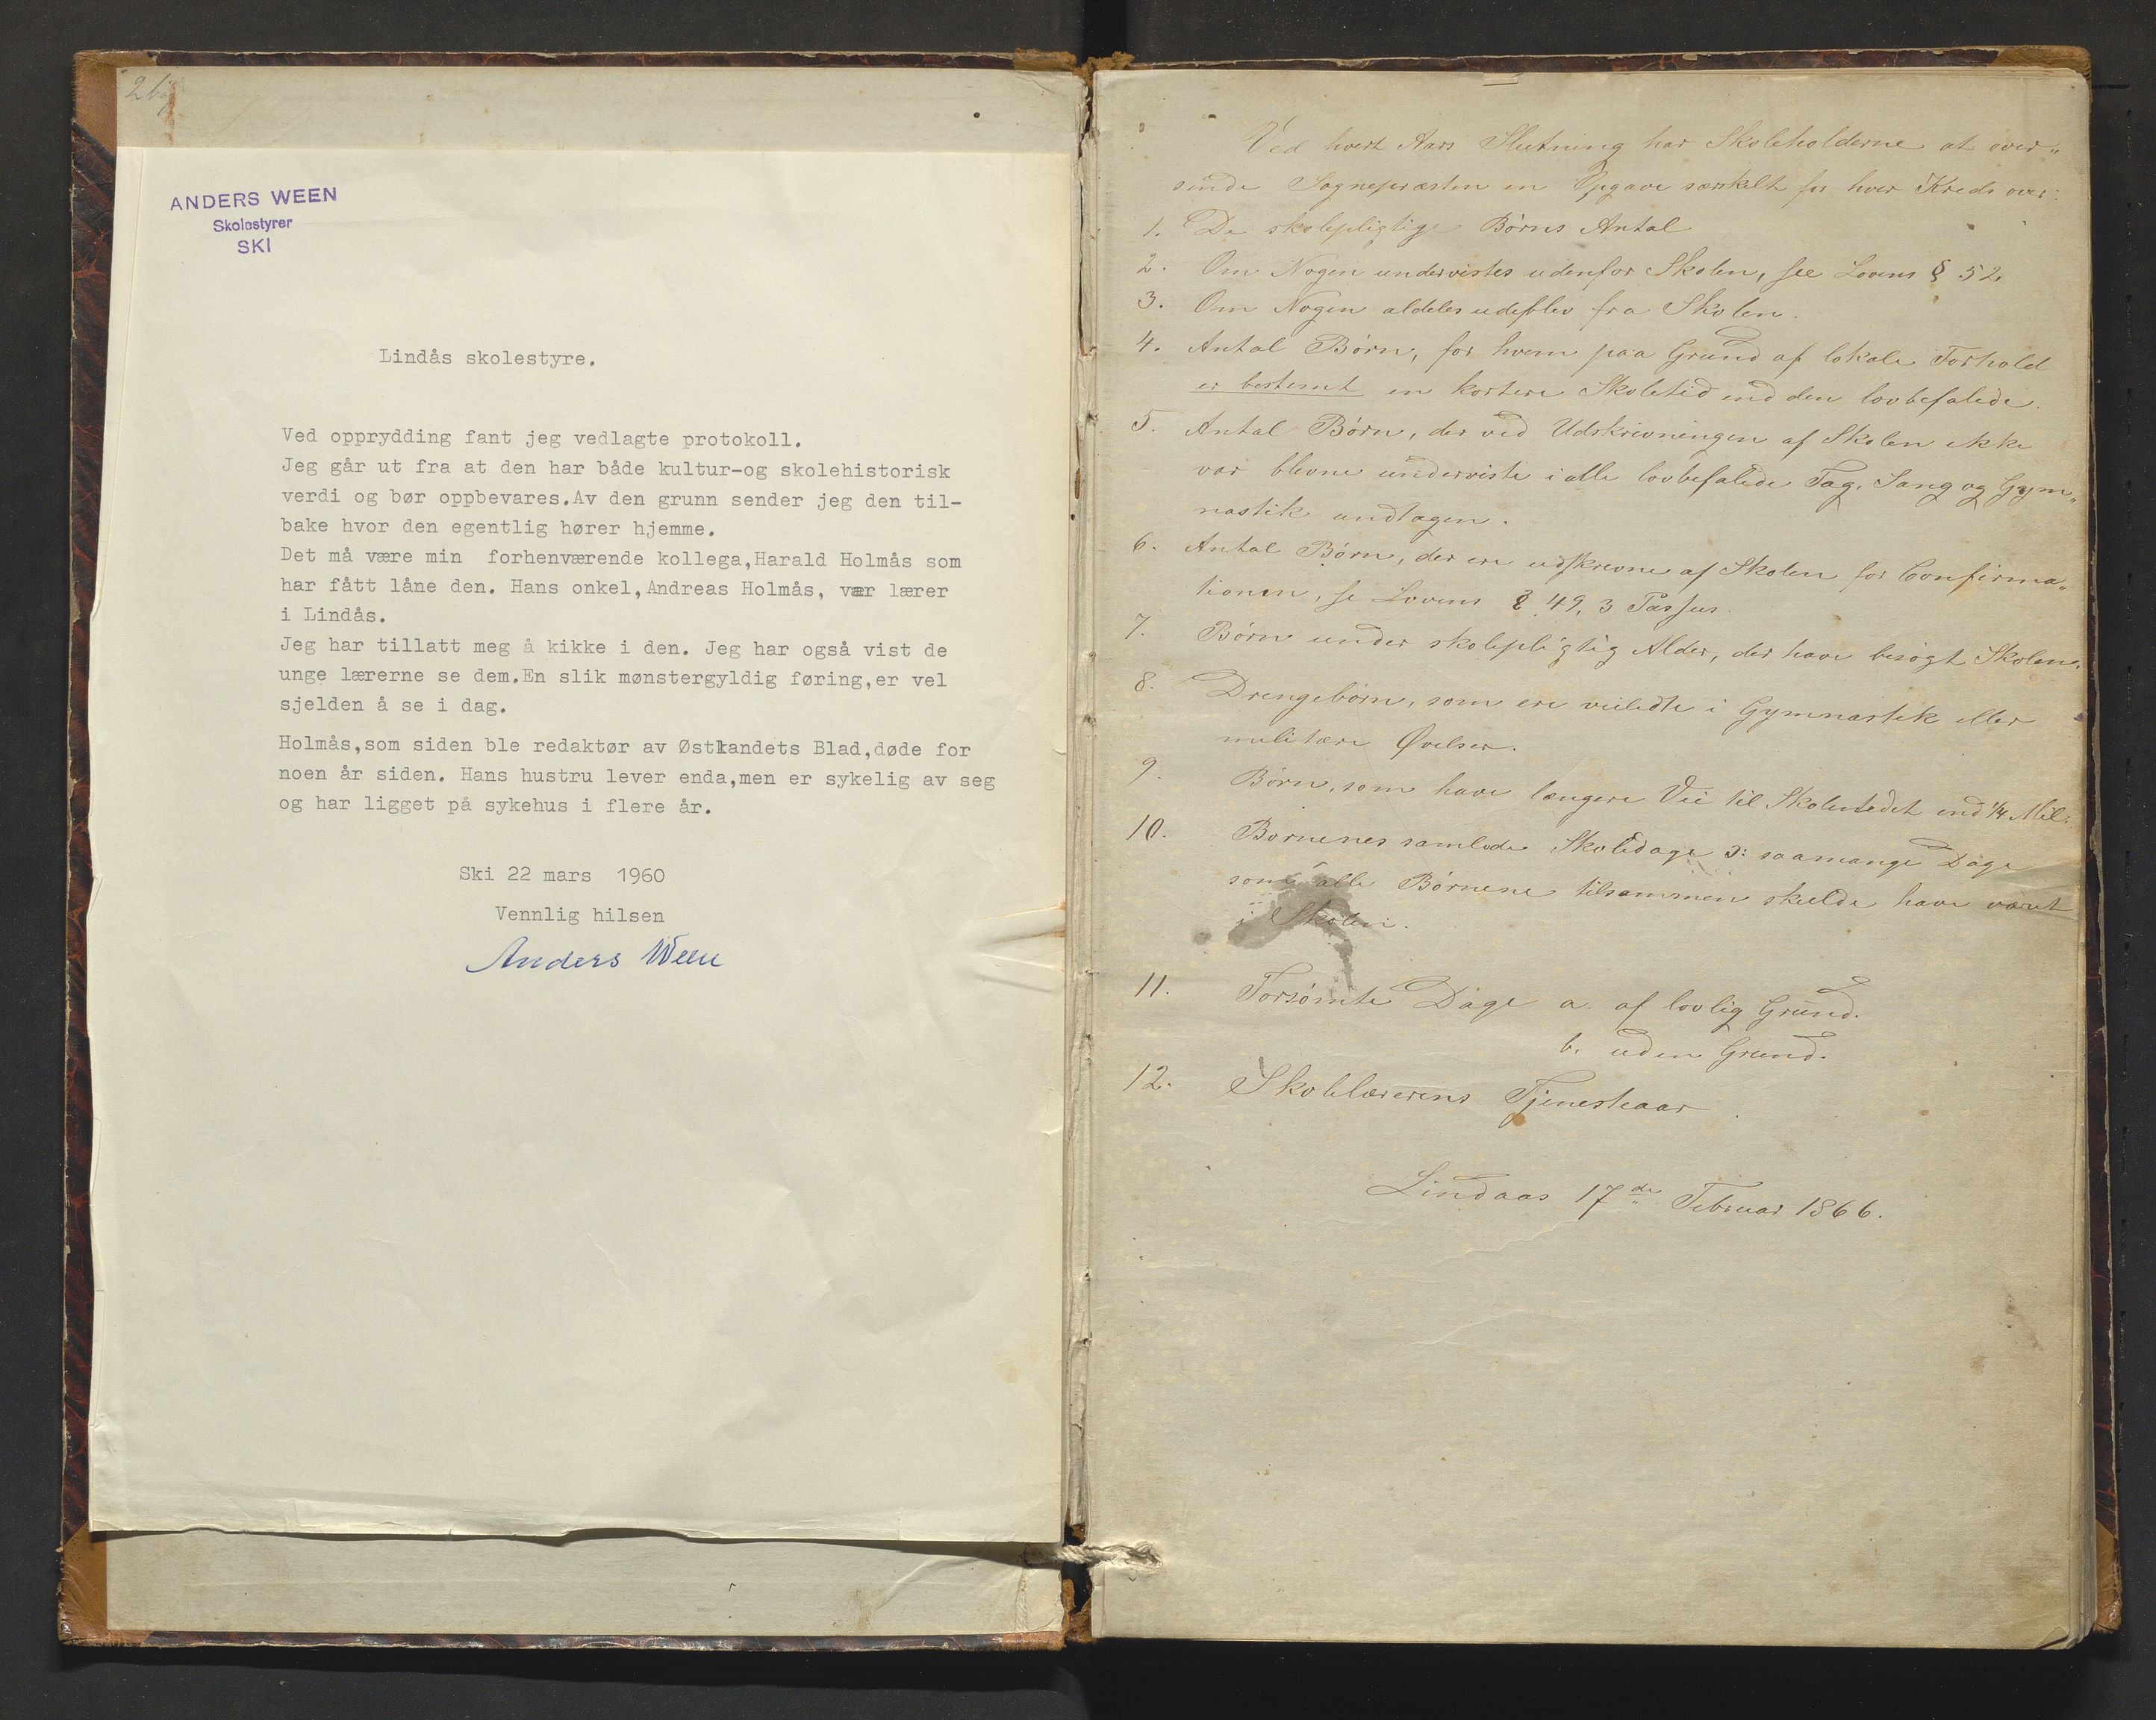 ANDERS WEEN
Skolestyrer
SKI
Lindås skolestyre.
Ved opprydding fant jeg vedlagte protokoll.
Jeg går ut fra at den har både kultur-og skolehistorisk
verdi og bør oppbevares.Av den grunn sender jeg den til-
bake hvor den egentlig hører hjemme.
Det må være min  forhenværende kollega,Harald Holmås som
har fått låne den. Hans onkel,Andreas Holmås, var lærer
i Lindås.
Jeg har tillatt meg å kikke i den. Jeg har også vist de
unge lærerne se dem.En slik mønstergyldig føring,er vel
sjelden å se i dag.
Holmås,som siden ble redaktør av Østlandets Blad,døde for
noen år siden. Hans hustru lever enda,men er sykelig av seg
og har ligget på sykehus i flere år.
Ski 22 mars  1960
Vennlig hilsen
Anders Ween
Ved hvert Aars Slutning har Skoleholderne at over„
sende Sognepræsten en Opgave særskilt for hver Kreds over:
1. De skolepligtige Børns Antal
2. Om Nogen undervistes udenfor Skolen, see Lovens § 52
3. Om Nogen aldeles udeblev fra Skolen.
4. Antal Børn, for hvem paa Grund af lokale Forhold
er bestemt en kortere Skoletid end den lovbefalede.
5. Antal Børn, der ved Udskrivningen af Skolen ikke
var blevne underviste i alle lovbefalede Fag, Sang og Gym„
nastik undtagen.
6. Antal Børn, der ere udskrevne af Skolen for Confirma„
tionen, se Lovens § 49, 3 Passus.
7. Børn under skolepligtig Alder, der have besøgt Skolen.
8. Drengebørn, som ere veiledte i Gymnastik eller
militære Øvelser.
9. Børn, som have længere Vei til Skolestedet end 1/4 Mil.
10. Børnenes samlede Skoledage ɔ: saamange Dage
som alle Børnene tilsammen skulde have været
i Skolen.
11. Forsømte Dage a. af lovlig Grund.
b. uden Grund.
12. Skolelærerens Tjenesteaar.
Lindaas 17de Februar 1866.